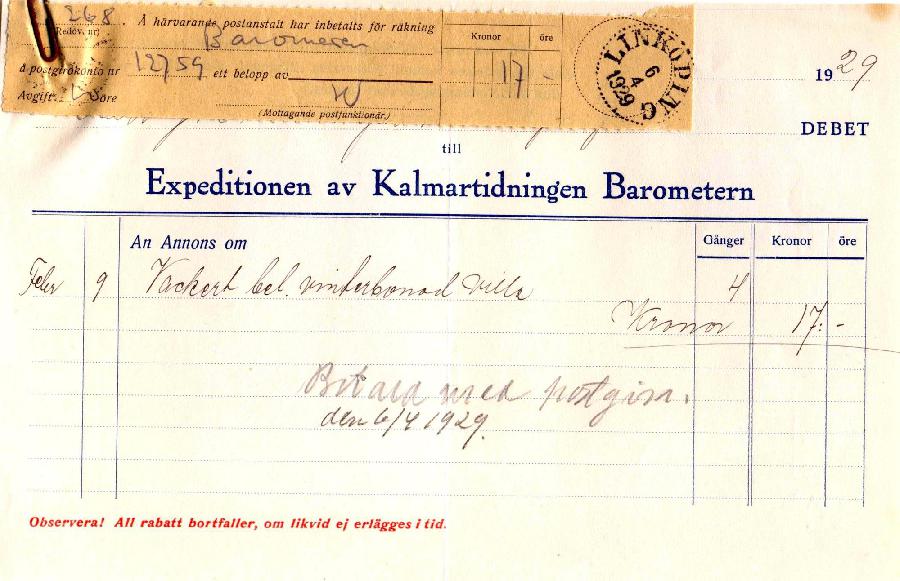 268. Å härvarande postanstalt har inbetalts för räkning
(Redov. nr) Barometern
Kronor öre
å postgirokonto nr 12759 ett belopp av
17 -
Avgift öre
(Mottagande postfunktionär.)
LINKÖPING
6 4
1929
1929
DEBET
till
Expeditionen av Kalmartidningen Barometern
An Annons om Gånger Kronor öre
Febr 9 Vackert bel. vinterbonad villa 4
Kronor 17:-
Betald med postgiro.
den 6/4 1929.
Observera! All rabatt bortfaller, om likvid ej erlägges i tid.